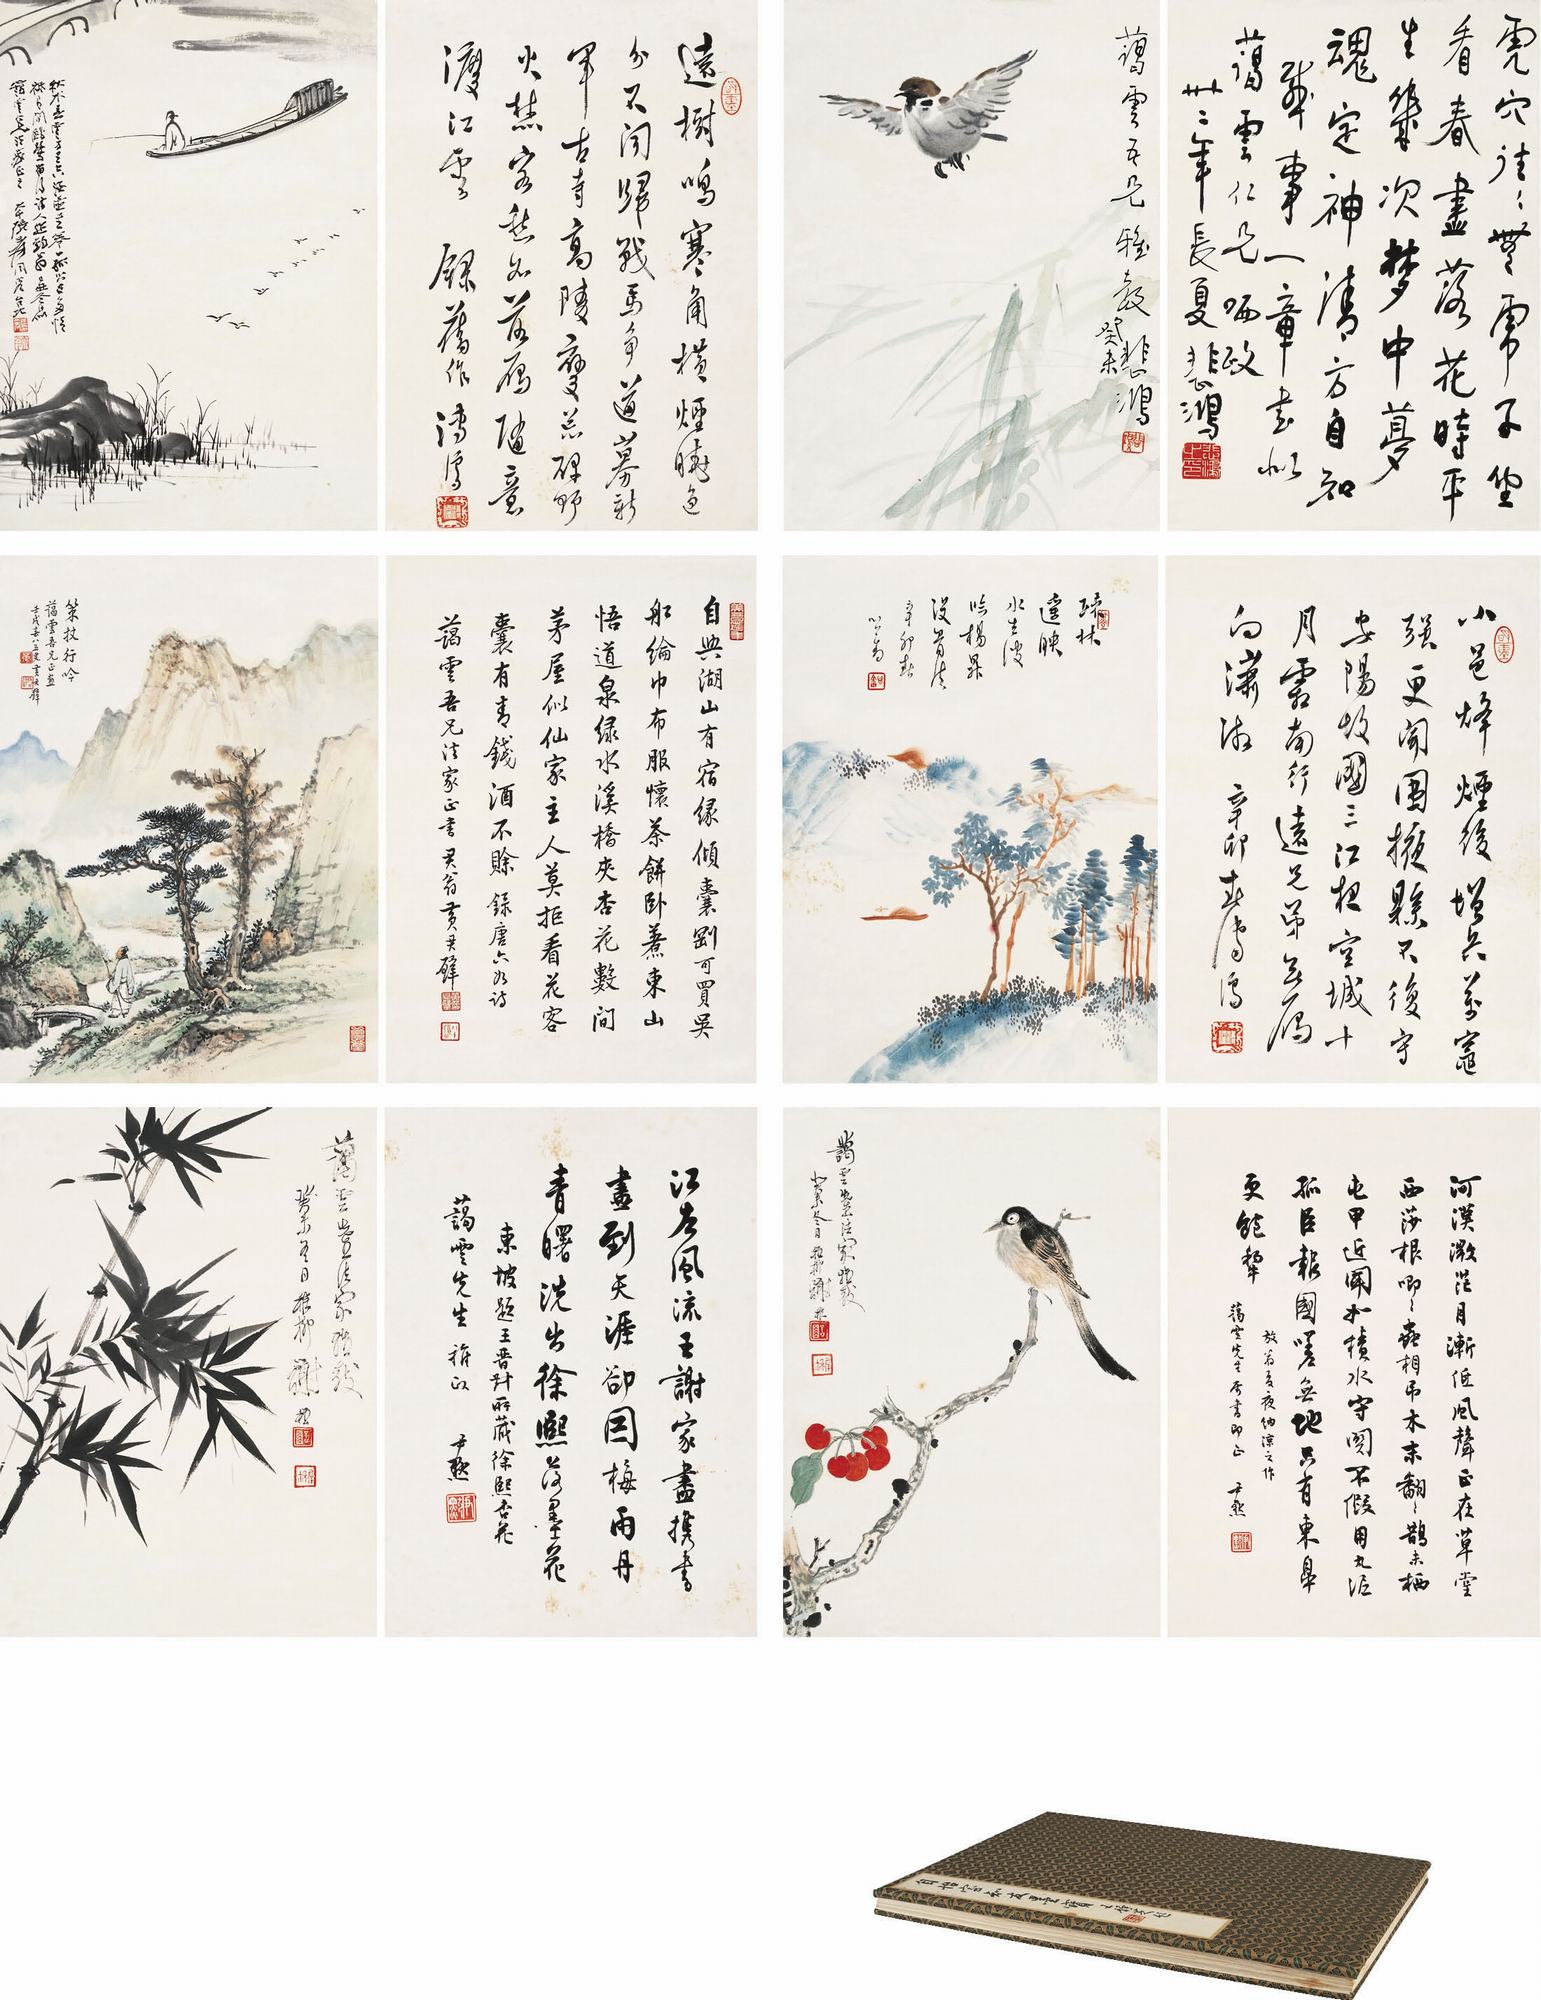 遠樹鳴寒角橫煙曉色
分不聞歸戰馬爭道募新
軍古寺高陵變荒碑野
火焚客愁如落雁隨意
渡江雲 錄舊作 溥儒
藹雲吾兄雅教 悲鴻
癸未
虎穴往往無虎子坐
看春盡落花時平
生幾次夢中夢
魂定神清方自知
一章書似
藹雲仁兄哂政
卅二年長夏 悲鴻
策杖行吟
藹雲吾兄正畫
自與湖山有宿緣傾囊剛可買吳
船綸巾布服懷茶餅臥煮東山
悟道泉綠水溪橋夾杏花數間
茅屋似仙家主人莫拒看花客
囊有青錢酒不賒 錄唐六如詩
藹雲吾兄法家正書 君翁黃君璧
疏林
遠映
水生波
臨楊昇
沒骨法
辛卯春
心畬
小邑烽煙後增兵萬竈
強更聞圍掖縣不復守
安陽故國三江根空城十
月霜南行遠兄弟無雁
向瀟湘 辛卯春 溥儒
藹雲先生法家雅教
癸未冬日 稚柳謝稚
江左風流王謝家盡攜書
畫到天涯卻因梅雨丹
青曙洗出徐熙落墨花
東坡題王晉卿所藏徐熙杏花
藹雲先生雅政 尹默
藹雲先生法家雅教
癸未冬日 稚柳謝稚
河漢微茫月漸低風聲正在草堂
西莎根唧唧蟲相弔木末翻翻鵲未栖
屯甲近聞如積水守關不假用丸泥
孤臣報國嗟無地只有東皋
更飽犂
放翁夏夜納涼之作
藹雲先生屬書即正 尹默